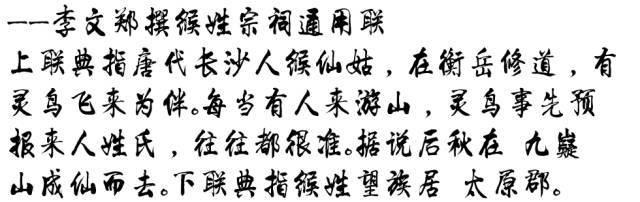 ——李文郑撰缑姓宗祠通用联
上联典指唐代长沙人缑仙姑，在衡岳修道，有
灵鸟飞来为伴。每当有人来游山，灵鸟事先预
报来人姓氏，往往都很准。据说后秋在 九嶷
山成仙而去。下联典指缑姓望族居 太原郡。